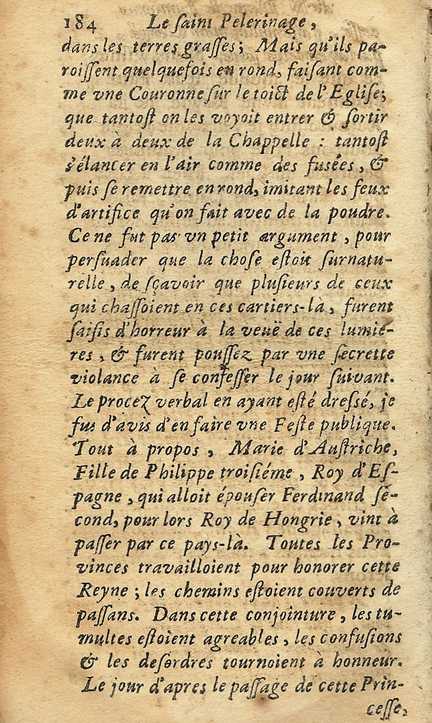 184 Le ſaint Pelerinage,
dans les terres graſſes; Mais qu'ils pa-
roiſſent quelquefois en rond, faiſant com-
me vne Couronne ſur le toict de l'Egliſe;
que tantoſt on les voyoit entrer & ſortir
deux à deux de la Chappelle : tantoſt
s'élancer en l'air comme des fusées, &
puis ſe remettre en rond, imitant les feux
d'artifice qu'on fait avec de la poudre.
Ce ne fut pas vn petit argument, pour
perſuader que la choſe eſtoit ſurnatu-
relle, de ſçavoir que pluſieurs de ceux
qui chaſſoient en ces cartiers-là, furent
ſaiſis d'horreur à la veuë de ces lumie-
res, & furent pouſſez par vne ſecrette
violance à ſe confeſſer le jour ſuivant.
Le procez verbal en ayant eſté dreſsé, je
fus d'avis d'en faire vne Feſte publique.
Tout à propos, Marie d'Auſtriche,
Fille de Philippe troiſiéme, Roy d'Eſ-
pagne, qui alloit épouſer Ferdinand ſe-
cond, pour lors Roy de Hongrie, vint à
paſſer par ce pays-là. Toutes les Pro-
vinces travailloient pour honorer cette
Reyne; les chemins eſtoient couverts de
paſſans. Dans cette conjointure, les tu-
multes eſtoient agreables, les confuſions
& les deſordres tournoient à honneur.
Le jour d'apres le paſſage de cette Prin-
ceſſe,